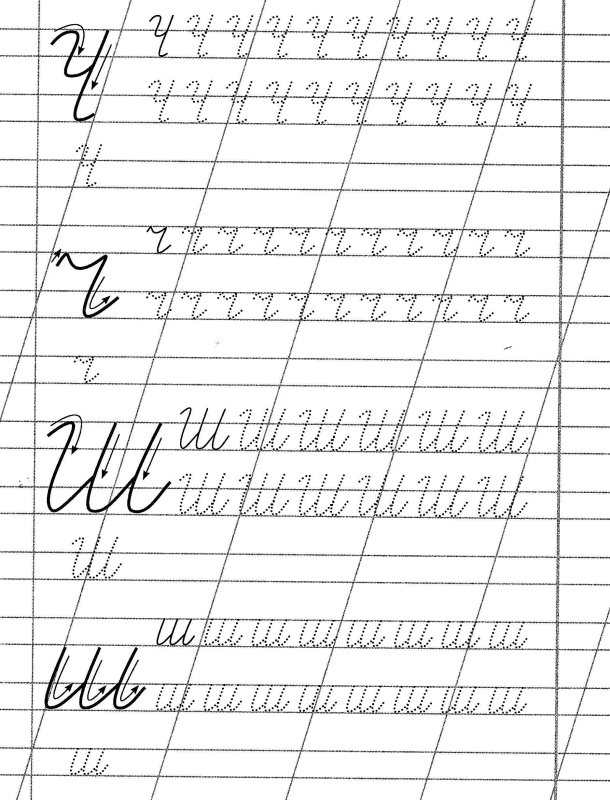 Ч Ч Ч Ч Ч Ч Ч Ч Ч Ч Ч
Ч Ч Ч Ч Ч Ч Ч Ч Ч Ч
Ч
ч ч ч ч ч ч ч ч ч ч ч ч
ч ч ч ч ч ч ч ч ч ч ч
ч
Ш Ш Ш Ш Ш Ш Ш
Ш Ш Ш Ш Ш Ш
Ш
ш ш ш ш ш ш ш ш ш
ш ш ш ш ш ш ш ш
ш